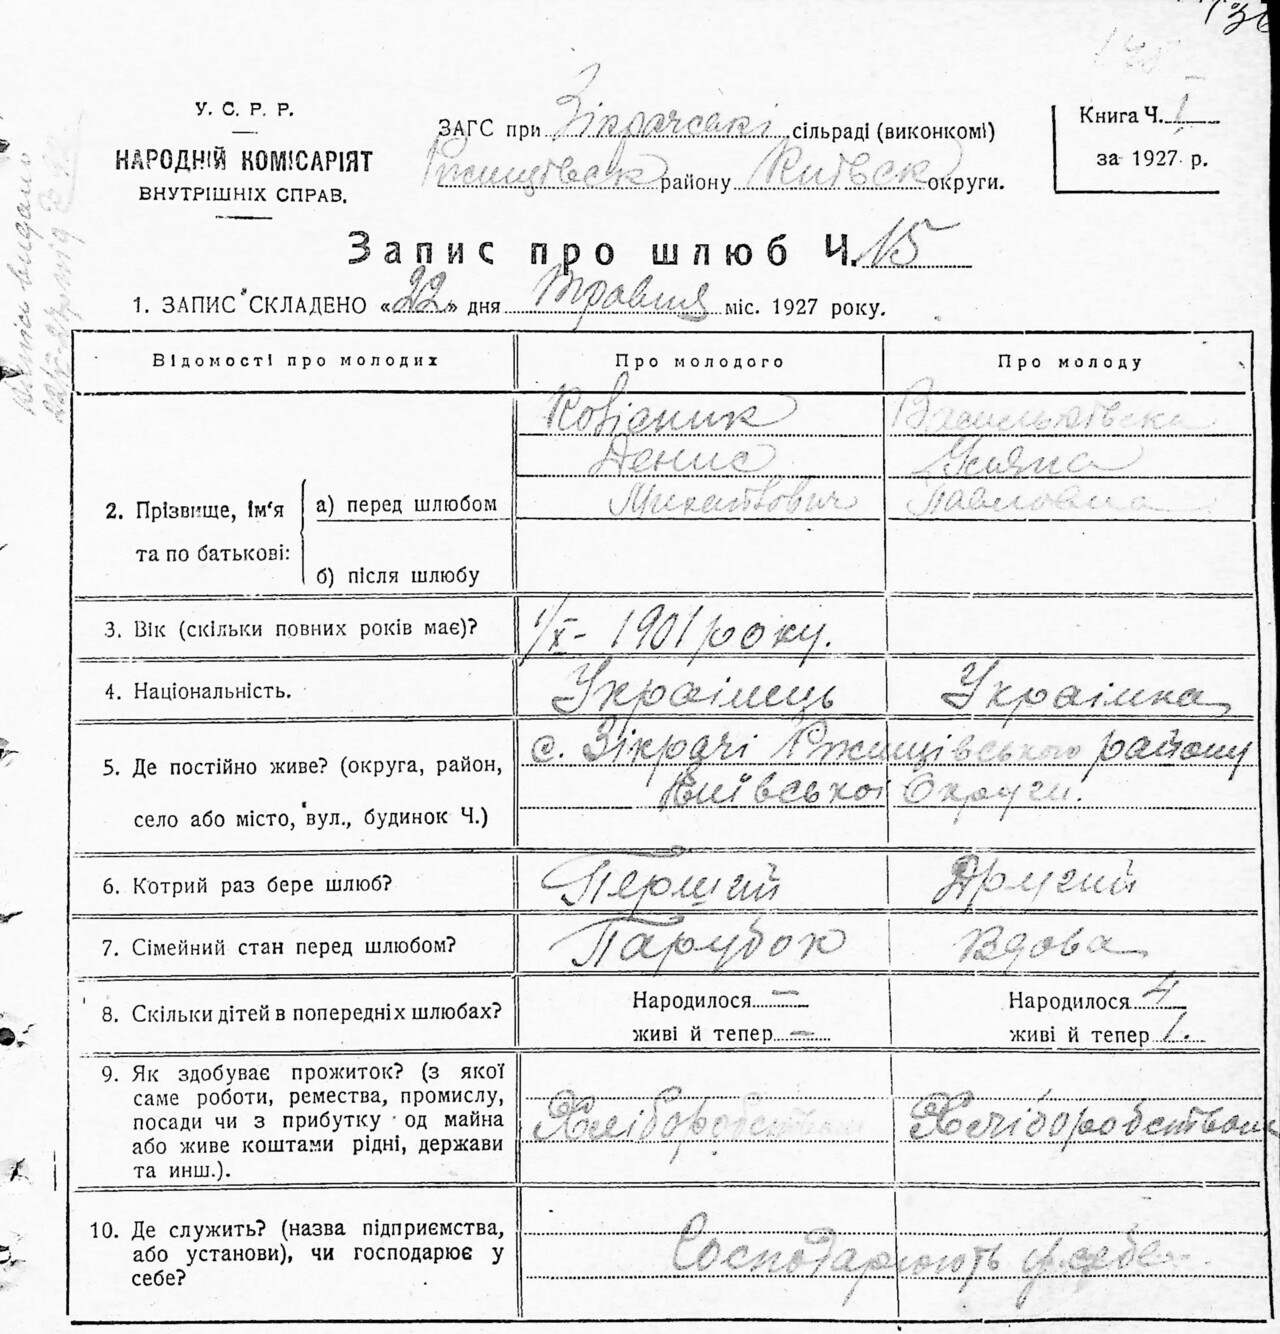 136
У. С. Р. Р.
НАРОДНІЙ КОМІСАРІЯТ
ВНУТРІШНІХ СПРАВ.
ЗАГС при Зікрачські сільраді (виконкомі)
Ржищівськ району Київськ округи.
Книга Ч. 1
за 1927 р.
Запис про шлюб Ч. 15
1. ЗАПИС СКЛАДЕНО «22» дня Травня міс. 1927 року.
Відомості про молодих
Про молодого
Про молоду
2. Прізвище, ім'я та по батькові:
а) перед шлюбом
Денис
Михайлович
Васильківська
Уляна
Павловна
б) після шлюбу
3. Вік (скільки повних років має)?
1/X - 1901 року.
4. Національність.
Українець
Українка
5. Де постійно живе? (округа, район,
село або місто, вул., будинок Ч.)
с. Зікрачі Ржищівського району
Київської Округи.
6. Котрий раз бере шлюб?
Перший
Другий
7. Сімейний стан перед шлюбом?
Парубок
Вдова
8. Скільки дітей в попередніх шлюбах?
Народилося –
живі й тепер –
Народилося 4
живі й тепер 1.
9. Як здобуває прожиток? (з якої
саме роботи, ремества, промислу,
посади чи з прибутку од майна
або живе коштами рідні, держави
та инш.).
Хліборобством
Хліборобством
10. Де служить? (назва підприємства,
або установи), чи господарює у
себе?
Господарюють у себе